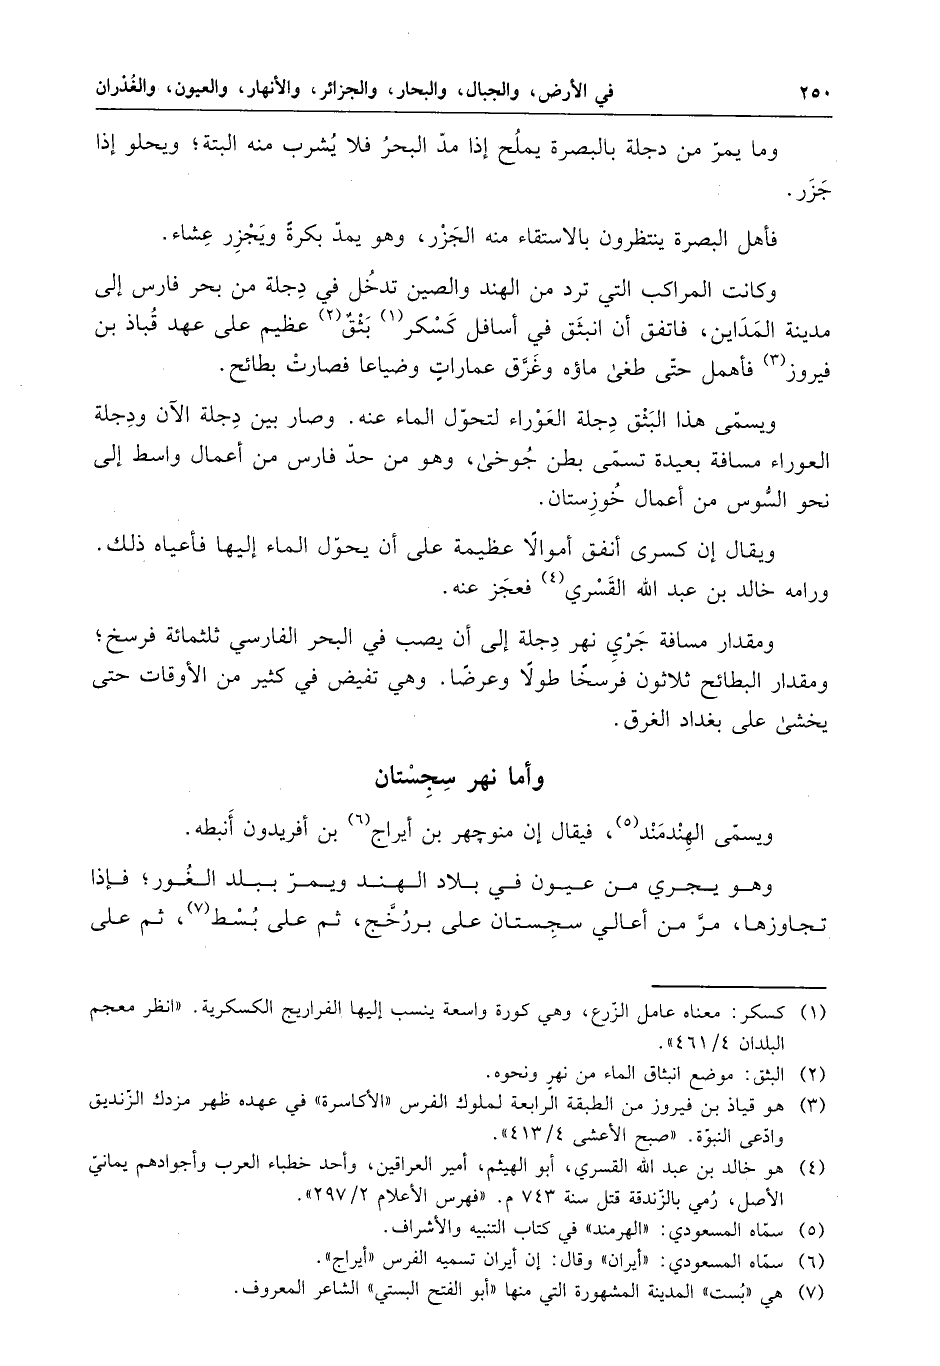 ٢٥٠ في الأرض، والجبال، والبحار، والجزائر، والأنهار، والعيون، والغُدْران
وما يمرّ من دجلة بالبصرة يملُح إذا مدّ البحرُ فلا يُشرب منه البتة؛ ويحلو إذا
جَزَر.
فأهل البصرة ينتظرون بالاستقاء منه الجَزْر، وهو يمدّ بكرةً ويَجْزِر عِشاء.
وكانت المراكب التي ترد من الهند والصين تدخُل في دِجلة من بحر فارس إلى
مدينة المَدَاين، فاتفق أن انبثَق في أسافل كَسْكر(١) بَثْقٌ(٢) عظيم على عهد قُباذ بن
فيروز(٣) فأهمل حتّى طغىٰ ماؤه وغَرَّق عماراتٍ وضياعا فصارتْ بطائح.
ويسمّى هذا البَثْق دِجلة العَوْراء لتحوّل الماء عنه. وصار بين دِجلة الآن ودِجلة
العوراء مسافة بعيدة تسمّى بطن جُوخىٰ، وهو من حدّ فارس من أعمال واسط إلى
نحو السُّوس من أعمال خُوزِستان.
ويقال إن كسرى أنفق أموالًا عظيمة على أن يحوّل الماء إليها فأعياه ذلك.
ورامه خالد بن عبد الله القَسْري(٤) فعجَز عنه.
ومقدار مسافة جَرْيِ نهر دِجلة إلى أن يصب في البحر الفارسي ثلثمائة فرسخ؛
ومقدار البطائح ثلاثون فرسخًا طولًا وعرضًا. وهي تفيض في كثير من الأوقات حتى
يخشىٰ على بغداد الغرق.
وأما نهر سِجِسْتان
ويسمّى الهِنْدمَنْد(٥)، فيقال إن منوچهر بن أيراج(٦) بن أفريدون أَنبطه.
وهو يجري من عيون في بلاد الهند ويمرّ ببلد الغُور؛ فإذا
تجاوزها، مرَّ من أعالي سجستان على بررُخَّج، ثم على بُسْط(٧)، ثم على
(١) كسكر: معناه عامل الزّرع، وهي كورة واسعة ينسب إليها الفراريج الكسكرية. «انظر معجم
البلدان ٤/ ٤٦١».
(٢) البثق: موضع انبثاق الماء من نهرٍ ونحوه.
(٣) هو قياذ بن فيروز من الطبقة الرابعة لملوك الفرس «الأكاسرة» في عهده ظهر مزدك الزّنديق
وادّعى النبوّة. «صبح الأعشى ٤/ ٤١٣».
(٤) هو خالد بن عبد الله القسري، أبو الهيثم، أمير العراقين، وأحد خطباء العرب وأجوادهم يمانيّ
الأصل، رُمي بالزّندقة قتل سنة ٧٤٣ م. «فهرس الأعلام ٢/ ٢٩٧».
(٥) سمّاه المسعودي: «الهرمند» في كتاب التنبيه والأشراف.
(٦) سمّاه المسعودي: «أيران» وقال: إن أيران تسميه الفرس «أيراج».
(٧) هي «بُست» المدينة المشهورة التي منها «أبو الفتح البستي» الشاعر المعروف.